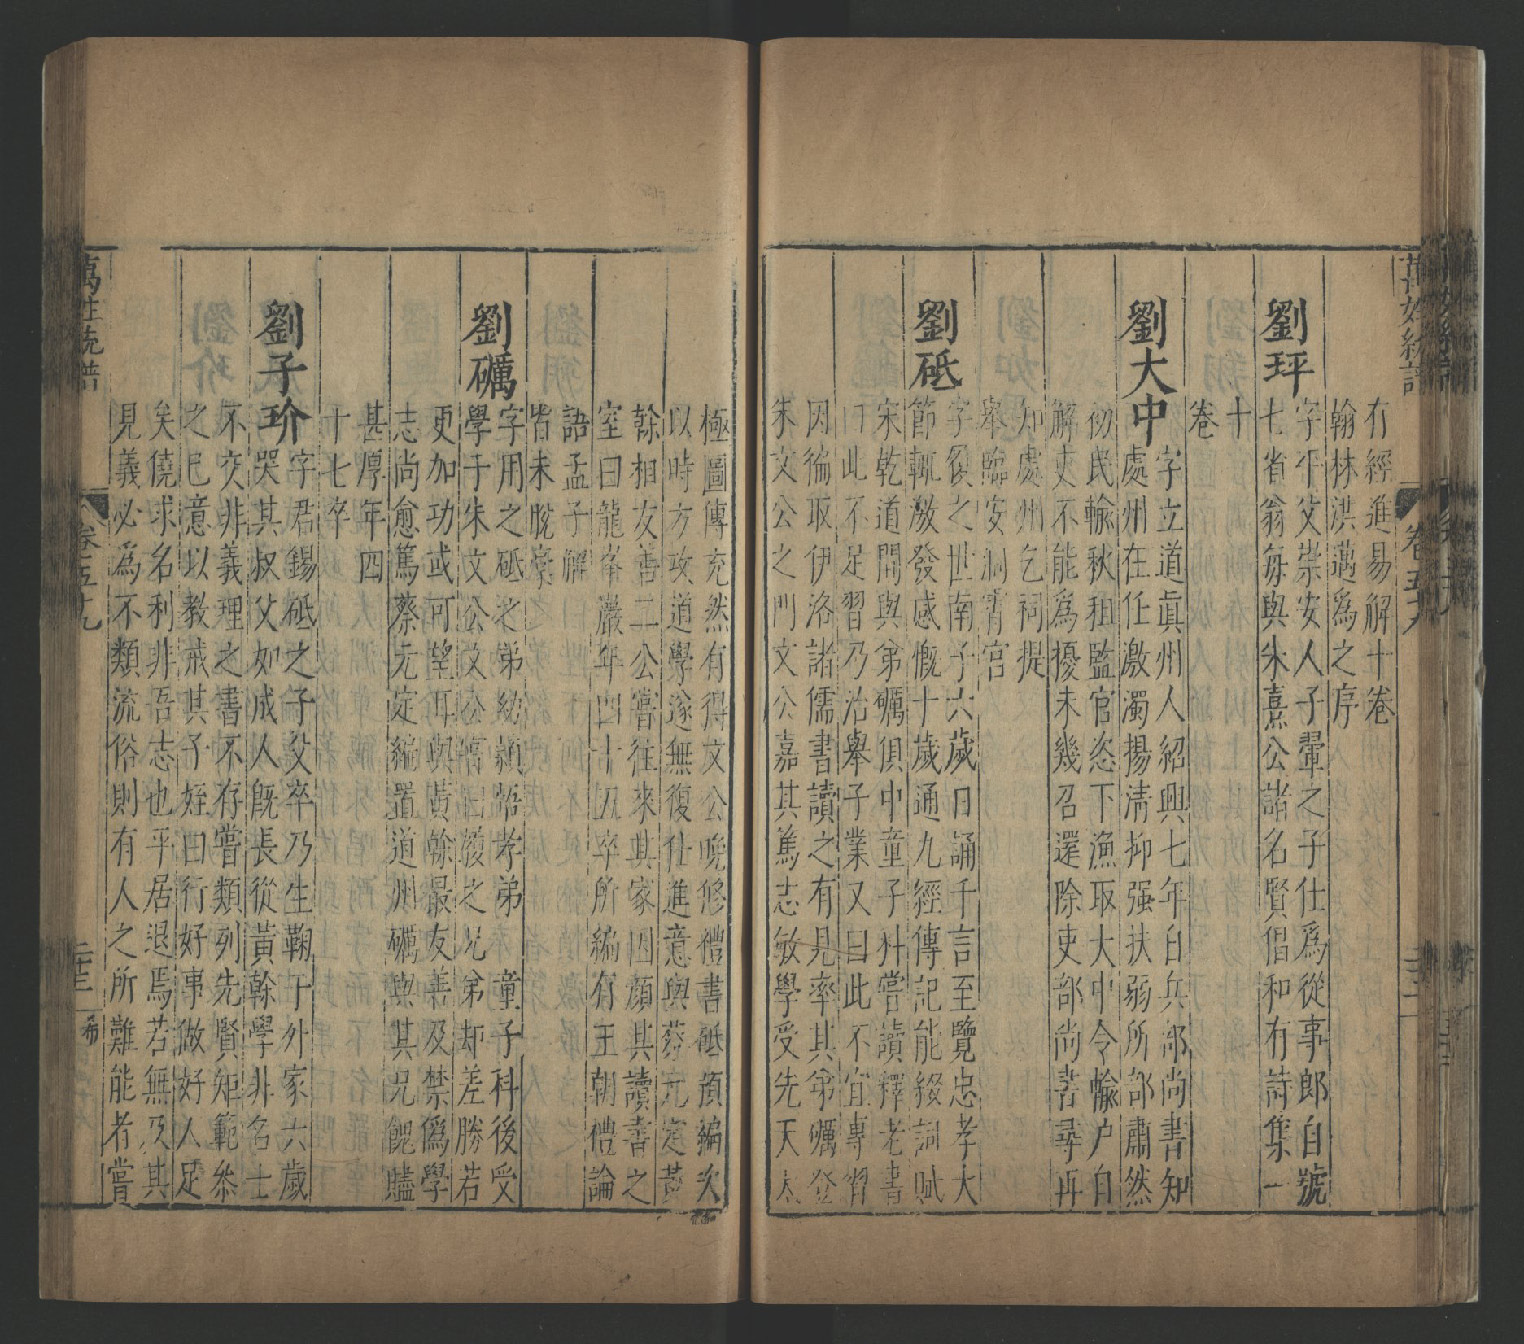 萬姓統譜 卷五十九
有經進易解十卷
翰林洪邁為之序
劉坪 字平父崇安人子翬之子仕爲從事郎自號
七省翁每與朱熹公諸名賢倡和有詩集一
十
卷
劉大中 字立道眞州人紹興七年自兵部尚書知
處州在任激濁揚清抑强扶弱所部肅然
初民輸秋租監官恣下漁取大中令輸户自
解吏不能爲擾未幾召還除吏部尚書尋再
知處州乞祠提
舉臨安洞霄宮
劉砥 字履之世南子六歲日誦千言至覽忠孝大
節輒激發感慨十歲通九經傳記能綴詞賦
宋乾道間與弟礪俱中童子科嘗讀釋老書
曰此不足習乃治舉子業又曰此不宜專習
因徧取伊洛諸儒書讀之有見率其弟礪登
朱文公之門文公嘉其篤志敏學受先天太
極圖傳充然有得文公晚修禮書砥預編次
以時方攻道學遂無復仕進意與蔡元定黃
榦相友善二公嘗往來其家因顏其讀書之
室曰龍峯巖年四十五卒所編有王朝禮論
語孟子解
皆未脫槀
劉礪 字用之砥之弟幼穎悟孝弟 童子科後受
學于朱文公文公稱曰履之兄弟却差勝若
更加功或可望耳與黃榦最友善及禁僞學
志尚愈篤蔡元定編置道州礪與其兄餽贐
甚厚年四
十七卒
劉子玠 字君錫砥之子父卒乃生鞠于外家六歲
哭其叔父如成人既長從黃榦學非名士
不交非義理之書不存嘗類列先賢矩範参
之己意以教戒其子姪曰行好事做好人足
矣僥求名利非吾志也平居退焉若無及其
見義必為不類流俗則有人之所難能者嘗
萬姓統譜 卷五十九 二十三 希